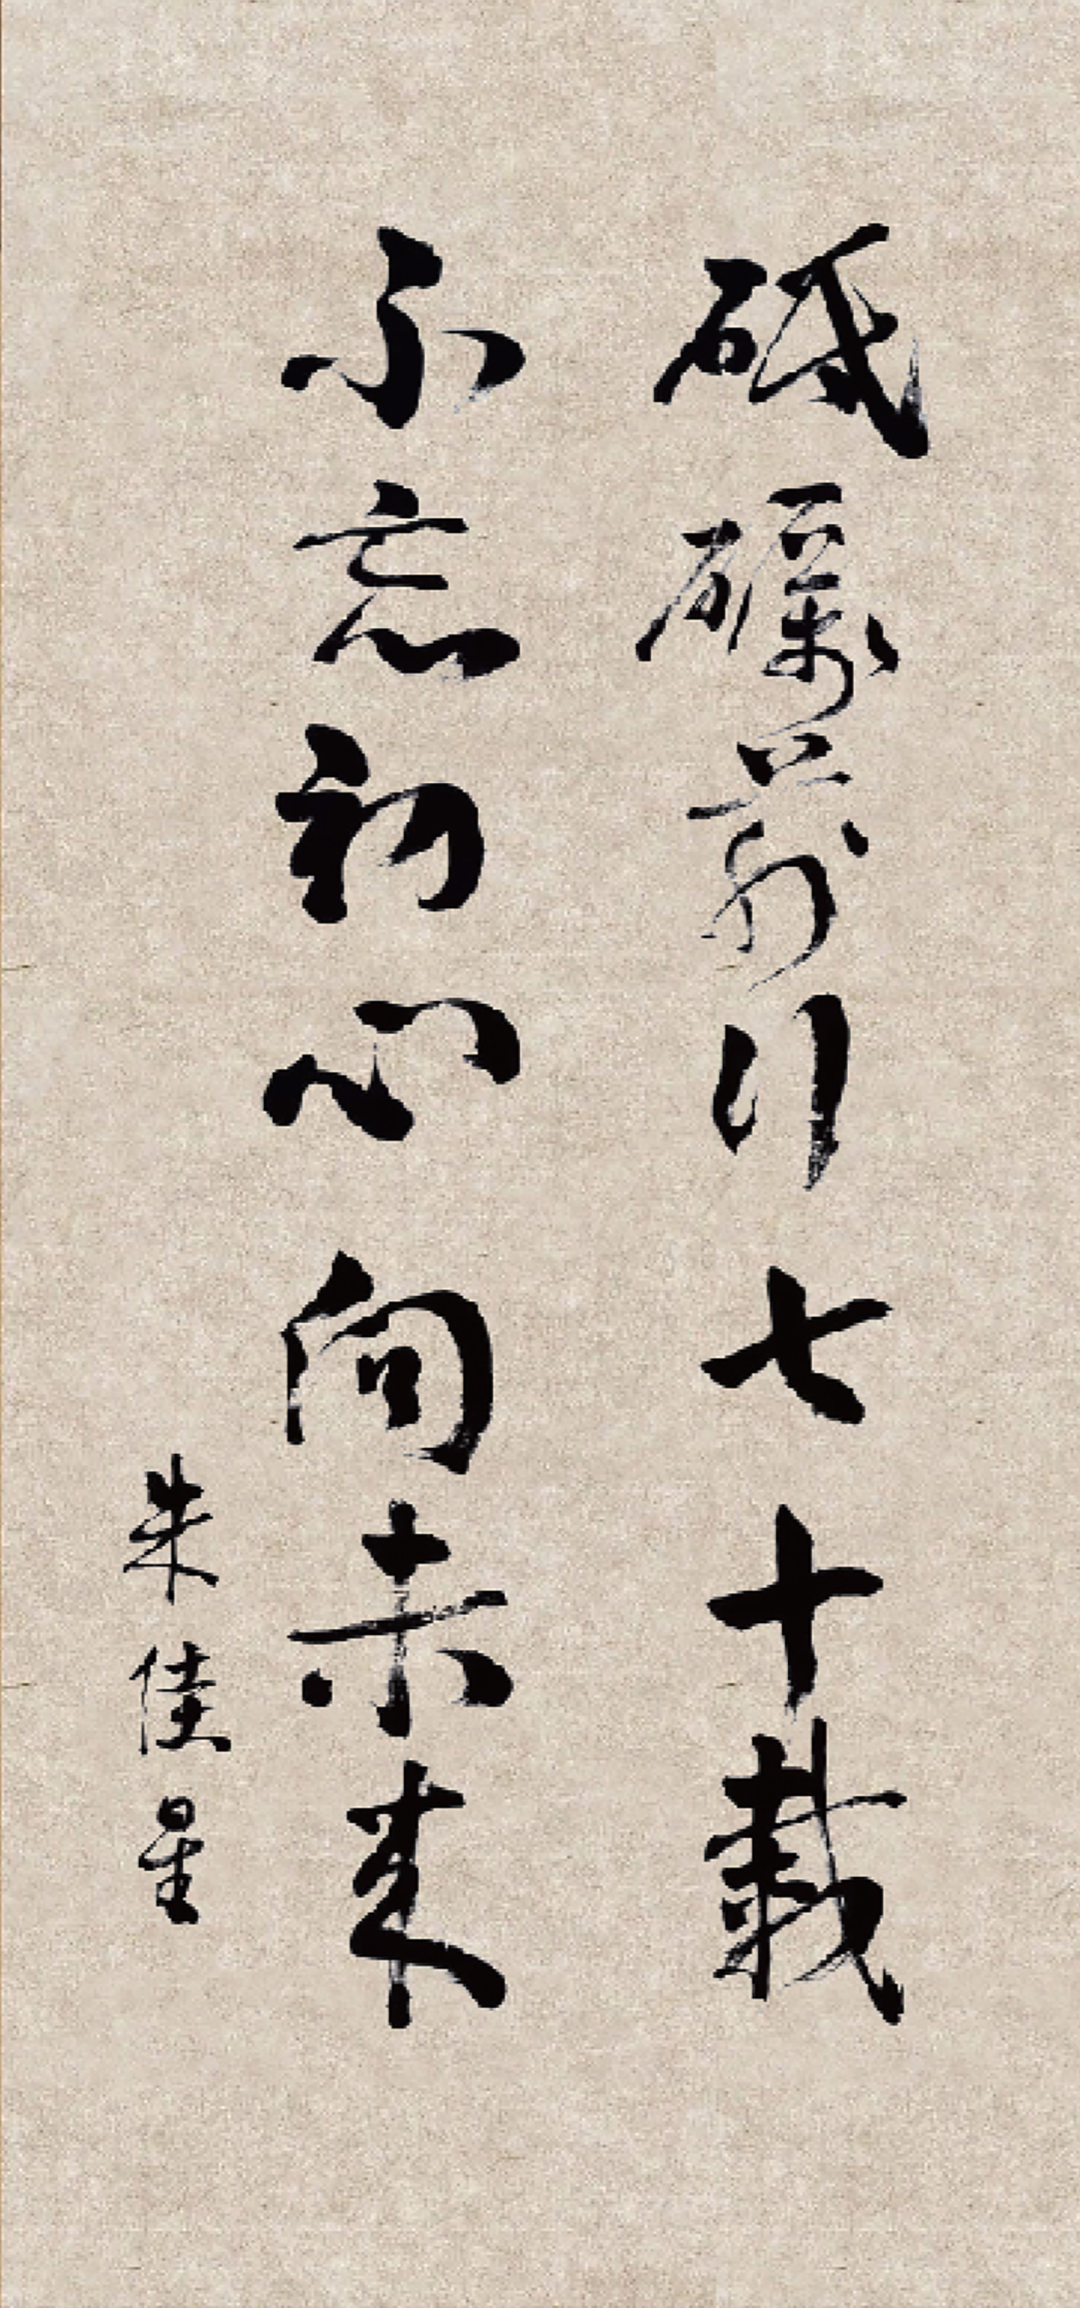 砥礪前行七十載
不忘初心向未来
朱佳星